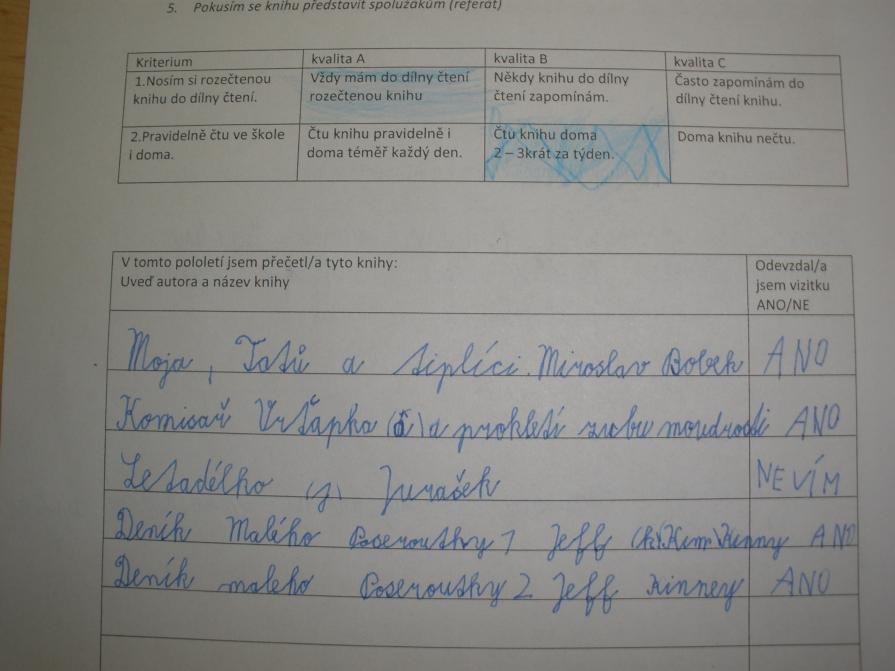 5. Pokusím se knihu představit spolužákům (referát)
Kriterium kvalita A kvalita B kvalita C
1.Nosím si rozečtenou Vždy mám do dílny čtení Někdy knihu do dílny Často zapomínám do
knihu do dílny čtení. rozečtenou knihu čtení zapomínám. dílny čtení knihu.
2.Pravidelně čtu ve škole Čtu knihu pravidelně i Čtu knihu doma Doma knihu nečtu.
i doma. doma téměř každý den. 2 – 3krát za týden.
V tomto pololetí jsem přečetl/a tyto knihy: Odevzdal/a
Uveď autora a název knihy jsem vizitku
ANO/NE
Moja, Tatů a tiplíci. Miroslav Bobek ANO
Komisař Vrťapka (a) a prokletí zubu moudrosti ANO
Letadélko (J) Jurášek NEVÍM
Deník Malého Poseroutky 1 Jeff ANO
Deník maleho Poseroutky 2 Jeff Kinney ANO